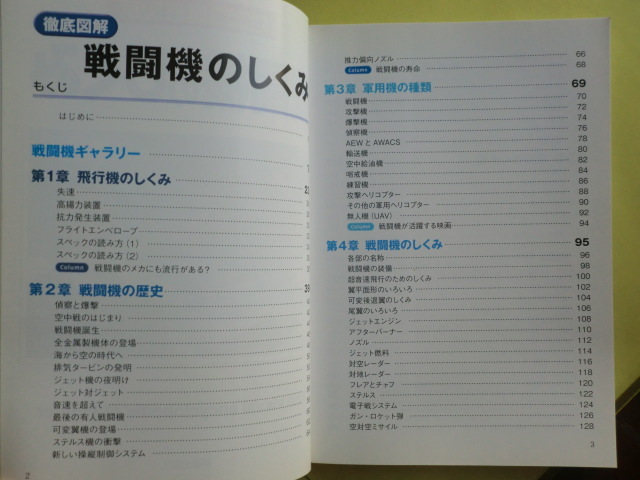 徹底図解
戦闘機のしくみ
もくじ
はじめに
戦闘機ギャラリー
第1章 飛行機のしくみ
失速
高揚力装置
抗力発生装置
フライトエンベロープ
スペックの読み方(1)
スペックの読み方(2)
Column 戦闘機のメカにも流行がある?
第2章 戦闘機の歴史
偵察と爆撃
空中戦のはじまり
戦闘機誕生
全金属製機体の登場
海から空の時代へ
排気タービンの発明
ジェット機の夜明け
ジェット対ジェット
音速を超えて
最後の有人戦闘機
可変翼機の登場
ステルス機の衝撃
新しい操縦制御システム
2
推力偏向ノズル 66
Column 戦闘機の寿命 68
第3章 軍用機の種類 69
戦闘機 70
攻撃機 72
爆撃機 74
偵察機 76
AEWとAWACS 78
輸送機 80
空中給油機 82
哨戒機 84
練習機 86
攻撃ヘリコプター 88
その他の軍用ヘリコプター 90
無人機(UAV) 92
Column 戦闘機が活躍する映画 94
第4章 戦闘機のしくみ 95
各部の名称 96
戦闘機の装備 98
超音速飛行のためのしくみ 100
翼平面形のいろいろ 102
可変後退翼のしくみ 104
尾翼のいろいろ 106
ジェットエンジン 108
アフターバーナー 110
ノズル 112
ジェット燃料 114
対空レーダー 116
対地レーダー 118
フレアとチャフ 120
ステルス 122
電子戦システム 124
ガン・ロケット弾 126
空対空ミサイル 128
3